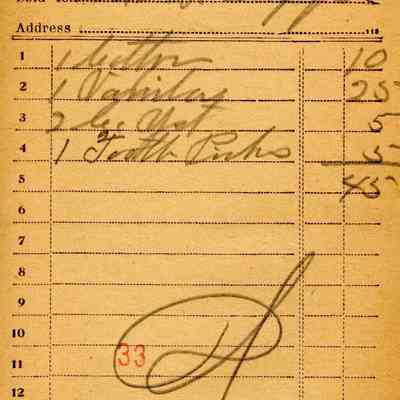 Address
1 1 10
2 1 Vanilla 25
3 2 5
4 1 Tooth Picks 5
5 45
6
7
8
9
10
33
11
12